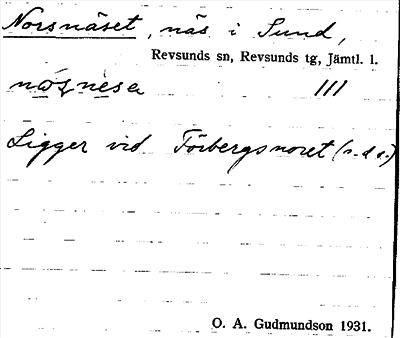 Norsnäset, näs i Sund,
Revsunds sn, Revsunds tg, Jämtl. l.
III
Ligger vid Förbergsnoret (s. d. o.)
O. A. Gudmundson 1931.